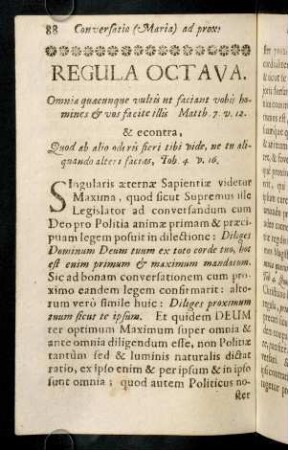 88 Conversatio (Maria) ad prox:
REGULA OCTAVA.
Omnia quæcunque vultis ut faciant vobis ho-
mines & vos facite illis Matth. 7. v. 12.
& econtra,
Quod ab alio oderis fieri tibi vide, ne tu ali-
quando alteri facias, Tob. 4. v. 16.
SIngularis æternæ Sapientiæ videtur
Maxima, quod sicut Supremus ille
Legislator ad conversandum cum
Deo pro Politia animæ primam & præci-
puam legem posuit in dilectione: Diliges
Dominum Deum tuum ex toto corde tuo, hoc
est enim primum & maximum mandatum.
Sic ad bonam conversationem cum pro-
ximo eandem legem confirmarit: alte-
rum verò simile huic: Diliges proximum
tuum sicut te ipsum. Et quidem DEUM
ter optimum Maximum super omnia &
ante omnia diligendum esse, non Politiæ
tantùm sed & luminis naturalis dictat
ratio, ex ipso enim & per ipsum & in ipso
sunt omnia; quod autem Politicus no-
ster